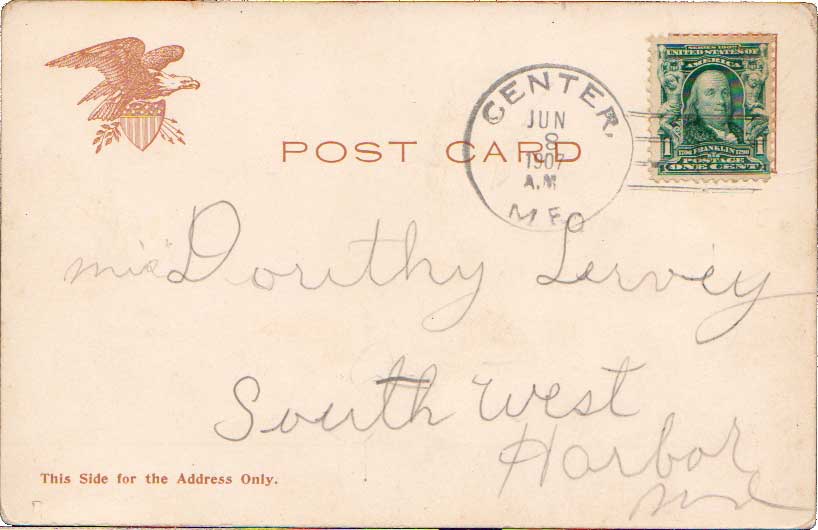 SERIES 1902
UNITED STATES OF
AMERICA
1 1706 FRANKLIN 1790 1
POSTAGE
ONE CENT
CENTER,
JUN
8
1907
A.M
ME
POST CARD
Miss Dorithy Lurvey
South West
Harbor
Me
This Side for the Address Only.